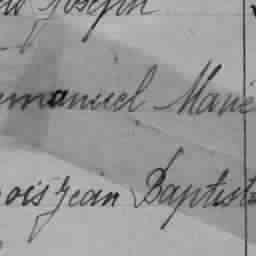 Joseph
emmanuel Marie
ois Jean Baptist